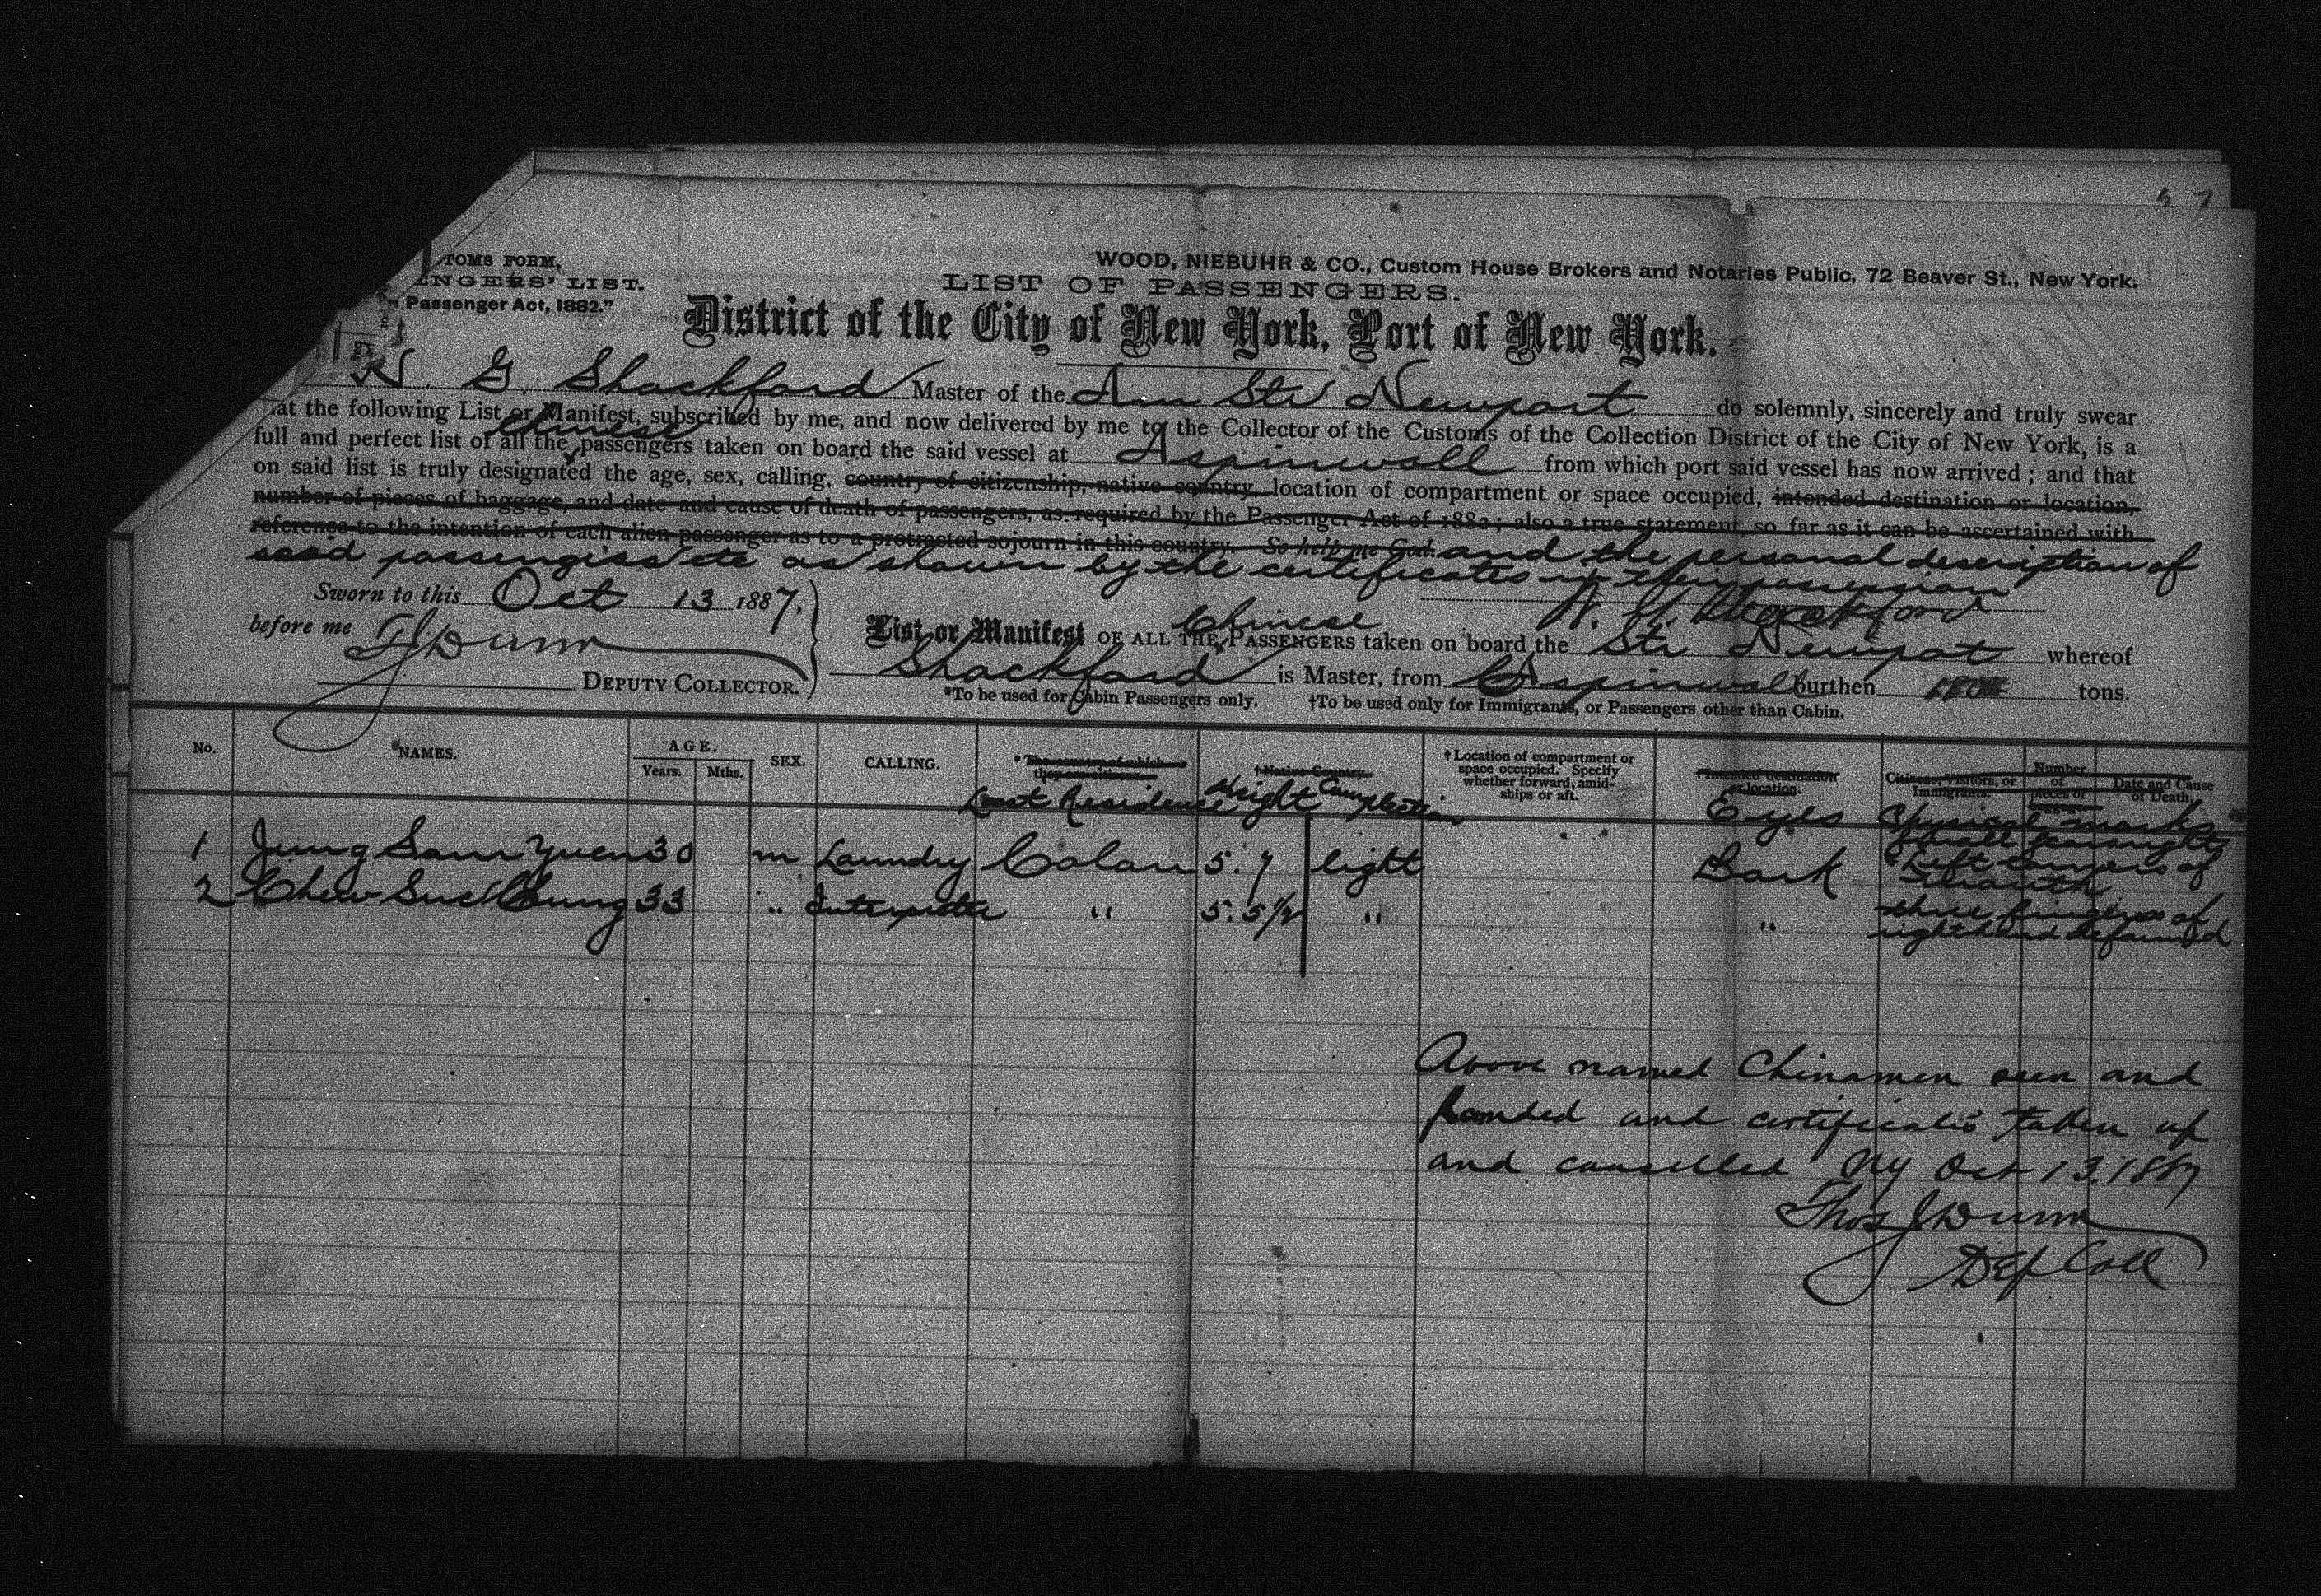 TOMS FORM,
ENGERS' LIST.
Passenger Act, 1882."
WOOD, NIEBUHR & CO., Custom House Brokers and Notaries Public, 72 Beaver St., New York.
LIST OF PASSENGERS.
District of the City of New York, Port of New York.
G Shackford Master of the Am Str Newport do solemnly, sincerely and truly swear
at the following List or Manifest, subscribed by me, and now delivered by me to the Collector of the Customs of the Collection District of the City of New York, is a
Chinese
full and perfect list of all the passengers taken on board the said vessel at Aspinwall from which port said vessel has now arrived; and that
on said list is truly designated the age, sex, calling, country of citizenship, native country, location of compartment or space occupied, intended destination or location,
number of pieces of baggage, and date and cause of death of passengers, as required by the Passenger Act of 1882; also a true statement, so far as it can be ascertained with
reference to the intention of each alien passenger as to a protracted sojourn in this country. So help me God. and the personal description of
said passengers etc as shown by the certificates in their possession
Sworn to this Oct 13 1887,
before me T J Dunn
DEPUTY COLLECTOR.
Shackford
Chinese
List or Manifest OF ALL THE PASSENGERS taken on board the Str Newport whereof
Shackford is Master, from Aspinwall burthen tons.
*To be used for Cabin Passengers only. †To be used only for Immigrants, or Passengers other than Cabin.
No. NAMES. AGE. Years. Mths. SEX. CALLING. †Native Country. †Location of compartment or space occupied. Specify whether forward, amidships or aft. †Intended destination or location. Citizens, Visitors, or Immigrants. Number of pieces of Date and Cause of Death.
Last Residence Height Complexion Eyes Physical marks
1 Jung Sam Yuen 30 m Laundry Colon 5.7 light Dark Small scar right & left corners of mouth
2 Chew Sue 33 " Interpreter " 5.5½ " " three fingers of right hand deformed
Above named Chinamen seen and
landed and certificates taken up
and cancelled NY Oct 13. 1887
Thos J Dunn
Dep Coll